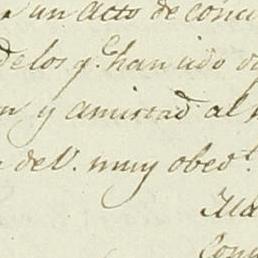 a un acto de conci
de los q.e han sido d
n y amistad al
de V. muy obed.t
Ma
Cong